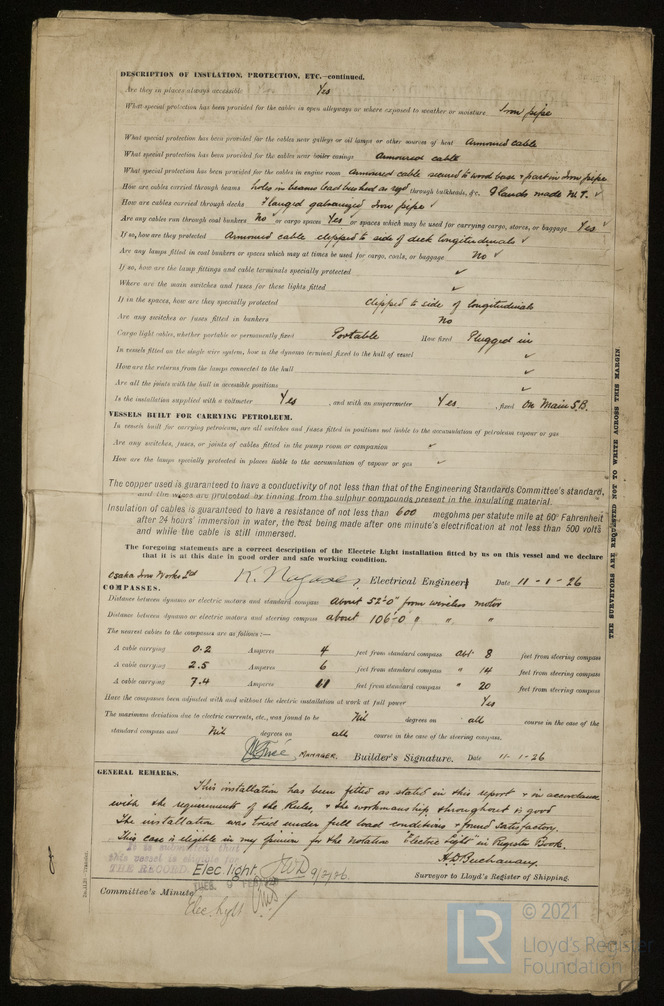 DESCRIPTION OF INSULATION, PROTECTION, ETC.—continued.
Are they in places always accessible Yes
What special protection has been provided for the cables in open alleyways or where exposed to weather or moisture Iron pipe
What special protection has been provided for the cables near galleys or oil lamps or other sources of heat Armoured cable
What special protection has been provided for the cables near boiler casings Armoured cable
What special protection has been provided for the cables in engine room Armoured cable secured to wood base & part in Iron pipe
How are cables carried through beams holes in beams lead bushed as reqd through bulkheads, &c. Glands made W.T. ✓
How are cables carried through decks Flanged galvanized Iron pipe ✓
Are any cables run through coal bunkers No or cargo spaces Yes or spaces which may be used for carrying cargo, stores, or baggage Yes ✓
If so, how are they protected Armoured cable clipped to side of deck longitudinals ✓
Are any lamps fitted in coal bunkers or spaces which may at times be used for cargo, coals, or baggage No ✓
If so, how are the lamp fittings and cable terminals specially protected ✓
Where are the main switches and fuses for these lights fitted ✓
If in the spaces, how are they specially protected Clipped to side of longitudinals
Are any switches or fuses fitted in bunkers No
Cargo light cables, whether portable or permanently fixed Portable How fixed Plugged in
In vessels fitted on the single wire system, how is the dynamo terminal fixed to the hull of vessel ✓
How are the returns from the lamps connected to the hull ✓
Are all the joints with the hull in accessible positions ✓
Is the installation supplied with a voltmeter Yes , and with an amperemeter Yes , fixed On Main S.B.
VESSELS BUILT FOR CARRYING PETROLEUM.
In vessels built for carrying petroleum, are all switches and fuses fitted in positions not liable to the accumulation of petroleum vapour or gas
Are any switches, fuses, or joints of cables fitted in the pump room or companion ✓
How are the lamps specially protected in places liable to the accumulation of vapour or gas ✓
The copper used is guaranteed to have a conductivity of not less than that of the Engineering Standards Committee's standard,
and the wires are protected by tinning from the sulphur compounds present in the insulating material.
Insulation of cables is guaranteed to have a resistance of not less than 600 megohms per statute mile at 60° Fahrenheit
after 24 hours' immersion in water, the test being made after one minute's electrification at not less than 500 volts
and while the cable is still immersed.
The foregoing statements are a correct description of the Electric Light installation fitted by us on this vessel and we declare
that it is at this date in good order and safe working condition.
Osaka Iron Works Ltd Electrical Engineers Date 11-1-26
COMPASSES.
Distance between dynamo or electric motors and standard compass about 52'-0" from wireless motor
Distance between dynamo or electric motors and steering compass about 106'-0 " " "
The nearest cables to the compasses are as follows:—
A cable carrying 0.2 Amperes 4 feet from standard compass abt. 8 feet from steering compass
A cable carrying 2.5 Amperes 6 feet from standard compass " 14 feet from steering compass
A cable carrying 7.4 Amperes 11 feet from standard compass " 20 feet from steering compass
Have the compasses been adjusted with and without the electric installation at work at full power Yes
The maximum deviation due to electric currents, etc., was found to be Nil degrees on all course in the case of the
standard compass and Nil degrees on all course in the case of the steering compass.
MANAGER. Builder's Signature. Date 11-1-26
GENERAL REMARKS.
This installation has been fitted as stated in this report & in accordance
with the requirements of the Rules, & the workmanship throughout is good
The installation was tried under full load conditions & found satisfactory.
This case is eligible in my opinion for the Notation "Electric Light" in Register Book.
It is submitted that
this vessel is eligible for
THE RECORD Elec. light. JWD 9/2/26.
A.D. Buchanan
Surveyor to Lloyd's Register of Shipping.
TUE. 9 FEB
Committee's Minute
Elec. Light
THE SURVEYORS ARE REQUESTED NOT TO WRITE ACROSS THIS MARGIN.
LR
© 2021
Lloyd's Register
Foundation